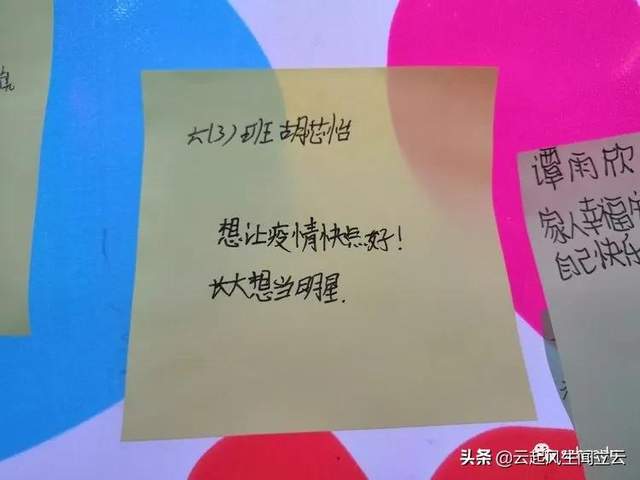 六(3)班胡芯怡
想让疫情快点好!
长大想当明星.
谭雨欣
家人幸福
自己快乐
头条 @云起风生闻立云